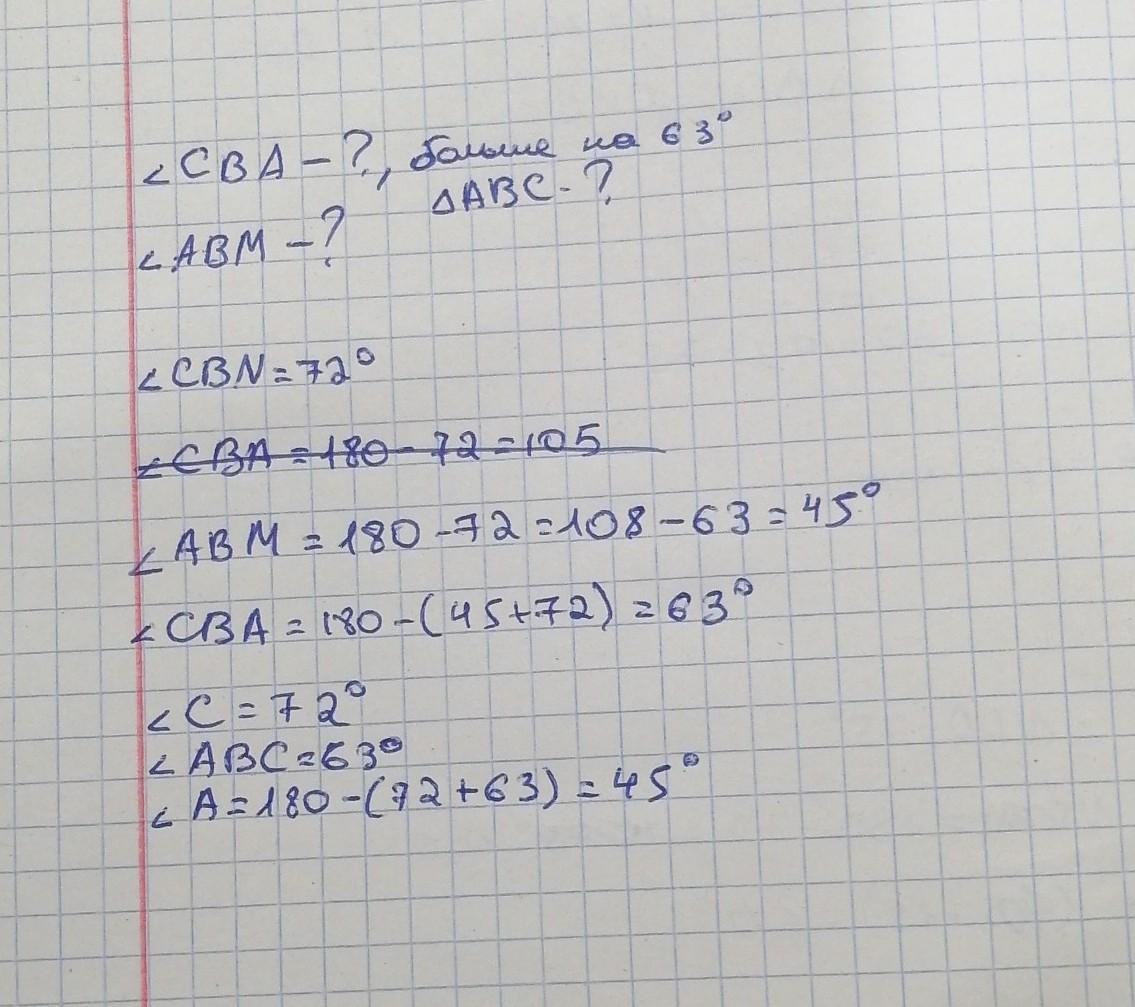 ∠CBA – ?, больше на 63°
△ABC - ?
∠ABM – ?
∠CBN = 72°
∠CBA = 180 – 72 = 105
∠ABM = 180 - 72 = 108 - 63 = 45°
∠CBA = 180 - (45+72) = 63°
∠C = 72°
∠ABC = 63°
∠A = 180 - (72+63) = 45°